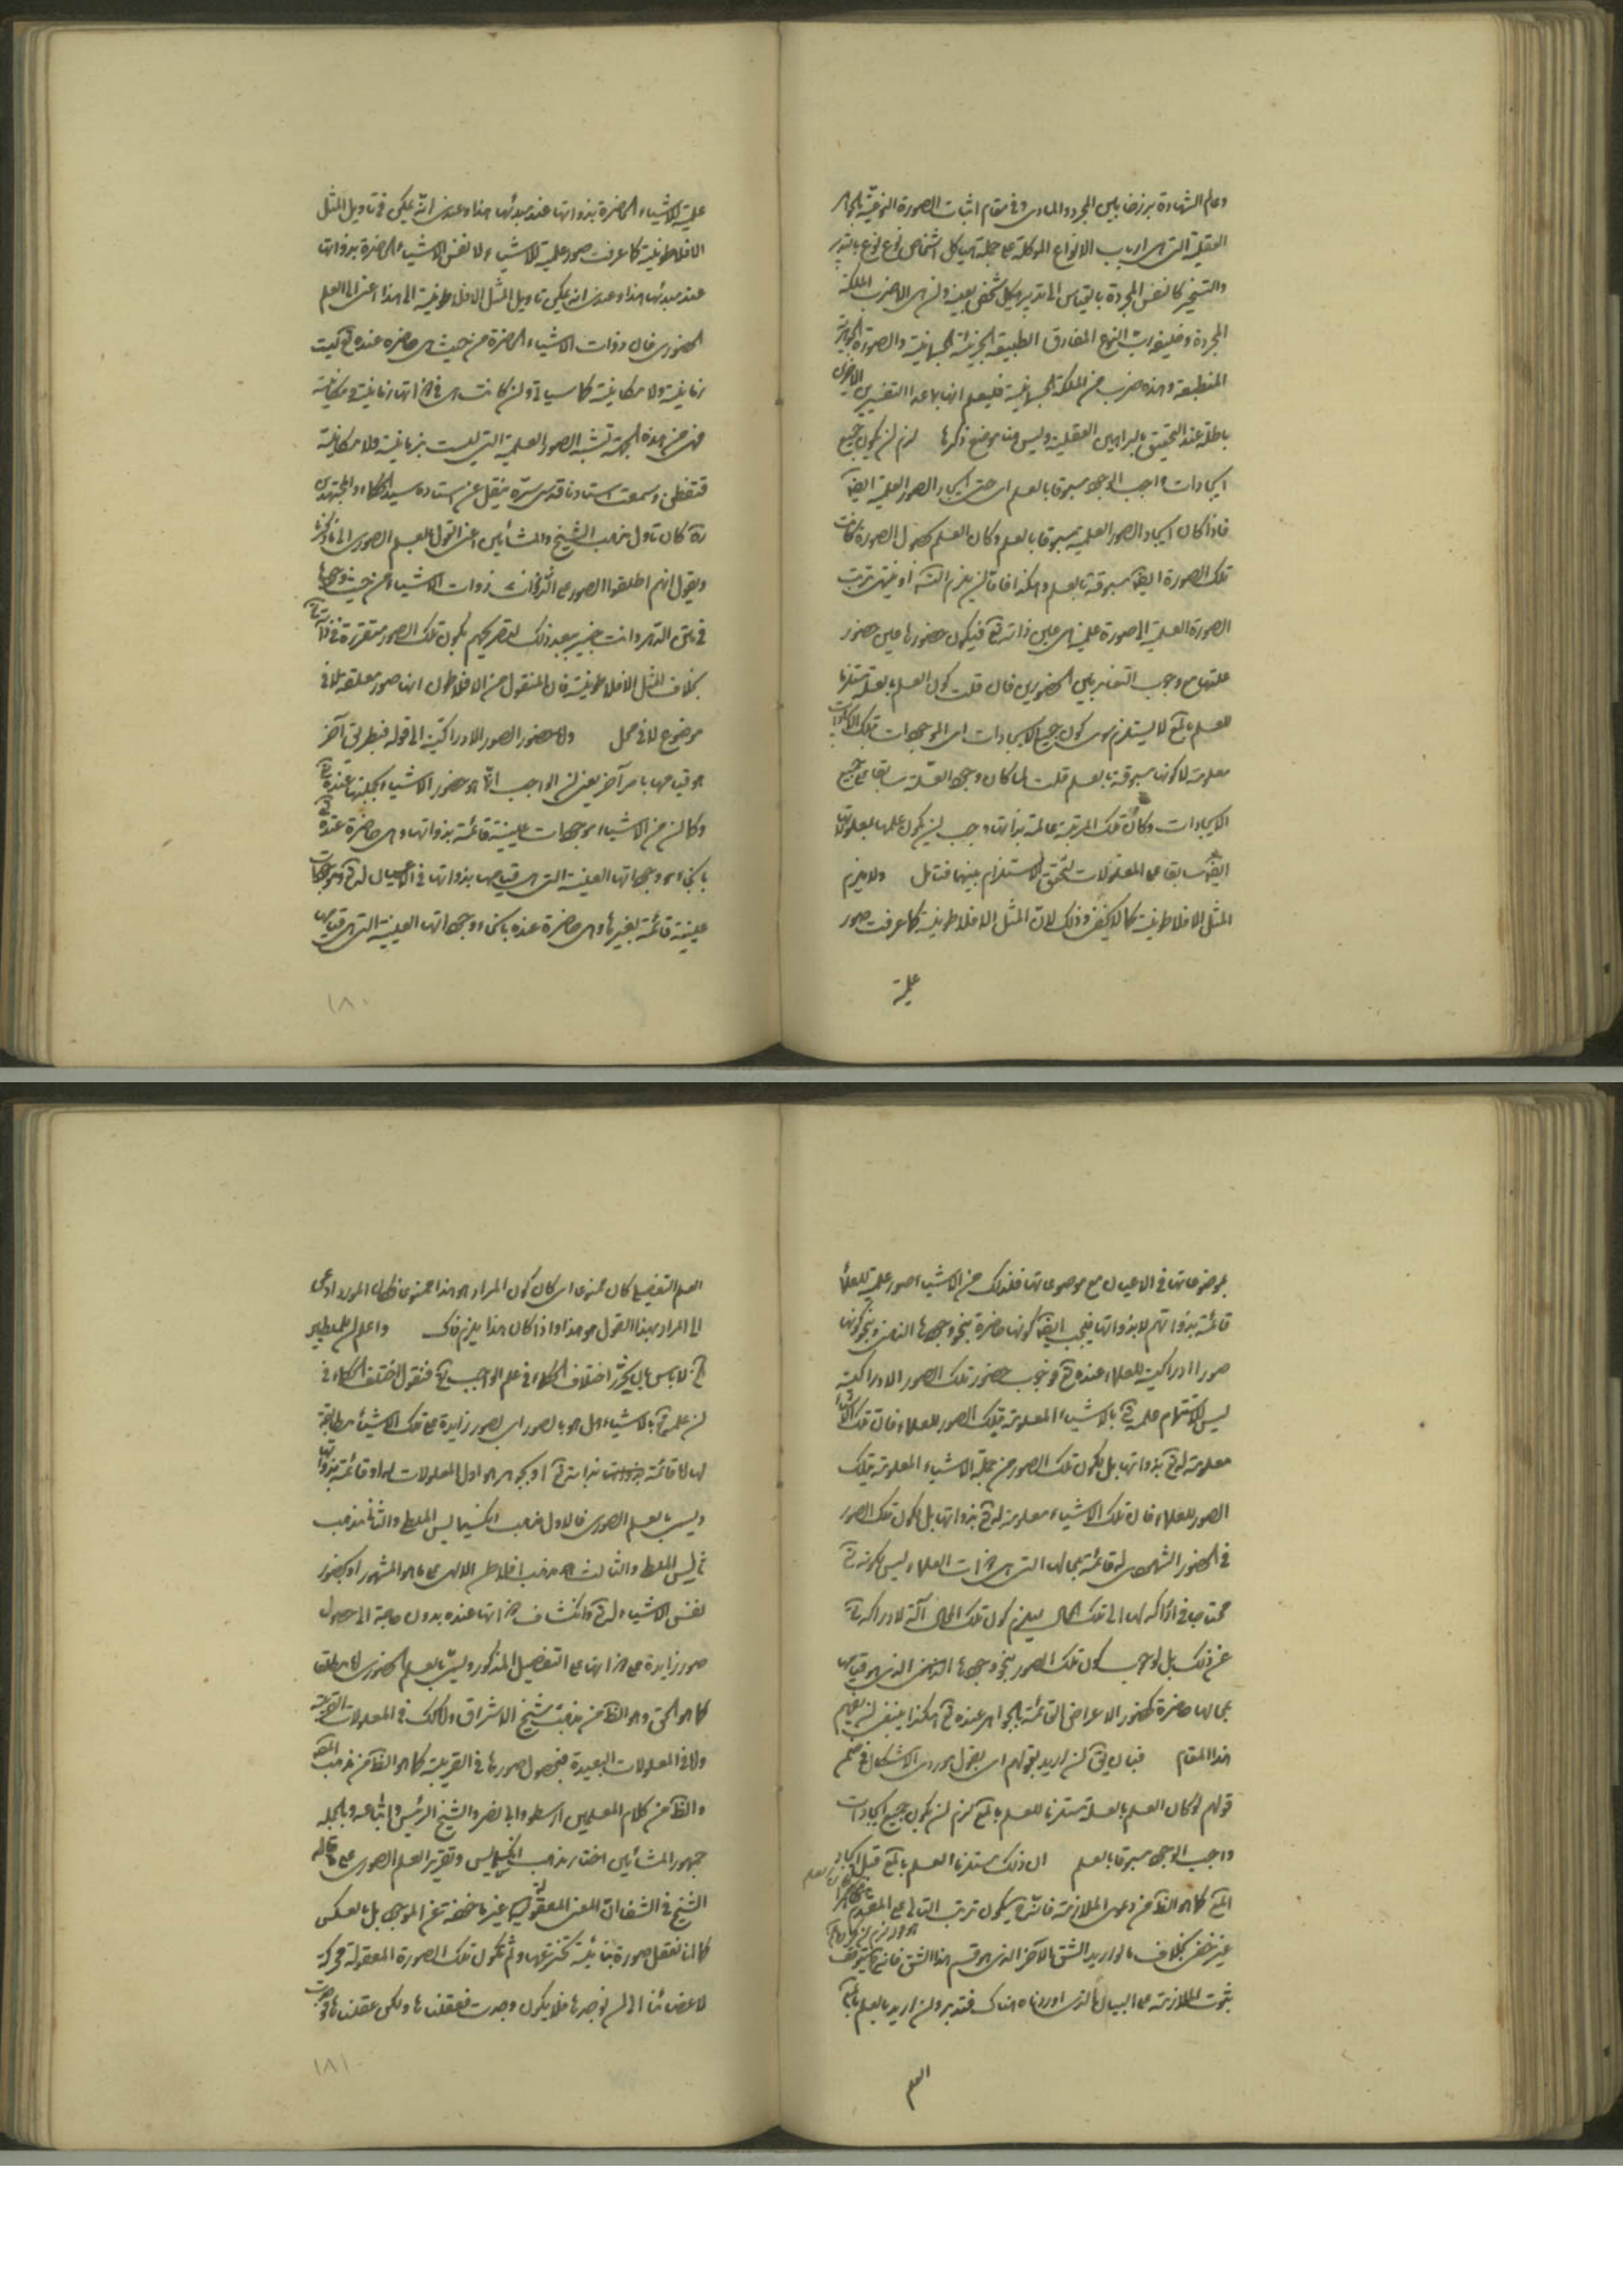 وعالم الشهادة برزخا بين المجرد والمادى وفى مقام اثبات الصورة النوعية الجواهر
العقلية التى هى ارباب الانواع الموكلة على جملة هياكل اشخاص نوع نوع بالتدبير
والتسخير كالنفس المجردة بالقياس الى تدبير هيكل شخصى بعينه وان هى الا ضرب الملكة
المجردة وخليفة رب النوع المفارق الطبيعة الجزئية الجسمانية والصورة الجوهرية
المنطبعة وهذه ضرب من الملكة الجسمانية فليعلم انها بهذا التفسير
باطلة عند التحقيق بالبراهين العقلية وليس هنا موضع ذكرها لزم ان يكون جميع
ايجادات واجب الوجود مسبوقا بالعلم اى حتى ايجاد الصور العلمية ايضا
فاذا كان ايجاد الصور العلمية مسبوقا بالعلم وكان العلم بحصول الصورة كانت
تلك الصورة ايضا مسبوقة بالعلم وهكذا فاما ان يلزم التسلسل او ينتهى ترتب
الصورة العلمية الى صورة علمية هى عين ذاته تعالى فيكون حضورها عين حضور
علتها مع وجوب التغاير بين الحضورين فان قلت كون العلم بالعلة مستلزما
للعلم بالمعلول لا يستلزم سوى كون جميع الايجادات اى الموجودات بتلك الايجادات
معلومة لا كونها مسبوقة بالعلم قلت لما كان وجود العلة سابقا على جميع
الايجادات وكانت تلك المرتبة عالمة بذاتها وجب ان يكون علمها بمعلولاتها
ايضا سابقا على المعلولات لتحقق الاستلزام بينهما فتامل ولا يلزم
المثل الافلاطونية كما لا يخفى وذلك لان المثل الافلاطونية كما عرفت صور
علمية
علمية للاشياء الحاضرة بذواتها عند مبدئها هذا وعندى انه يمكن فى تاويل المثل
الافلاطونية كما عرفت صور علمية للاشياء ولا نفس الاشياء الحاضرة بذواتها
عند مبدئها هذا وعندى انه يمكن تاويل المثل الافلاطونية الى هذا اعنى الى العلم
الحضورى فان ذوات الاشياء الحاضرة من حيث هى حاضرة عنده تعالى ليست
زمانية ولا مكانية كما سياتى وان كانت هى فى ذاتها زمانية ومكانية
فهى من هذه الجهة تشبه الصور العلمية التى ليست بزمانية ولا مكانية
فتفطن وسمعت استادنا قدس سره ينقل عن استاده سيد الحكماء والمجتهدين
ره كان تاول مذهب الشيخ والمشائين اعنى القول بالعلم الصورى الى ما ذكرنا
ويقول انهم اطلقوا الصور على ذوات الاشياء من حيث وجودها
فى متن الدهر وانت خبير ببعد ذلك لتصريحهم بكون تلك الصور متقررة فى ذاته تعالى
بخلاف المثل الافلاطونية فان المنقول من الافلاطون انها صور معلقة لا فى
موضوع لا فى محل واما حضور الصور الادراكية الى قوله فبطريق آخر
هو قيامها بامر آخر يعنى ان الواجب انما هو حضور الاشياء بجملتها عنده تعالى
وكما ان من الاشياء موجودات عينية قائمة بذواتها وهى حاضرة عنده تعالى
بانحاء وجوداتها العينية التى هى قيامها بذواتها فى الاعيان
عينية قائمة بغيرها وهى حاضرة عنده بانحاء وجوداتها العينية التى هى قيامها
١٨٠
بموضوعاتها فى الاعيان مع موضوعاتها فلذلك من الاشياء صور علمية للعلماء
قائمة بذواتهم لا بذواتها فيجب ايضا كونها حاضرة بنحو وجودها الذهنى وبنحو كونها
صورا ادراكية للعلماء عنده تعالى فوجوب حضور تلك الصور الادراكية
ليس لاستتمام علمه تعالى بالاشياء المعلومة بتلك الصور للعلماء فان تلك الاشياء
معلومة له تعالى بذواتها بل بكون تلك الصور من جملة الاشياء المعلومة بتلك
الصور للعلماء فان تلك الاشياء معلومة له تعالى بذواتها بل لكون تلك الصور
فى الحضور الشهودى له قائمة بمحالها التى هى ذوات العلماء ليس لكونه تعالى
محتاجا فى ادراكه لها الى تلك المحال ليلزم كون تلك المحال آلة لادراكه تعالى
عن ذلك بل لوجوب كون تلك الصور بنحو وجودها الذهنى الذى هو قيامها
بمحالها حاضرة كحضور الاعراض القائمة بالجواهر عنده تعالى هكذا ينبغى ان يفهم
هذا المقام فبان يقال ان اريد بقولهم اى بقول مورد الاشكال فى ضمن
قولهم لو كان العلم بالعلة مستلزما للعلم بالمعلول لزم ان يكون جميع ايجادات
واجب الوجود مسبوقا بالعلم ان ذلك مستلزما العلم بالمعلول قبل ايجاد
المعلول كما هو الظاهر من دعوى الملازمة فانه ح يكون ترتب التالى على المقدم
غير خفى بخلاف ما لو اريد الشق الآخر الذى هو قسيم هذا الشق فانه ح يتوقف
ثبوت الملازمة على البيان الذى اوردناه هناك فتدبر وان اريد بالعلم بالمعلول
العلم
العلم التفصيلى كان ممنوعا اى كان كون المراد هو هذا ممنوعا فظهر المورد ادعى
ان المراد بهذا القول هو هذا واذا كان هذا يلزم ذلك واعلم ان المطلب
ح لا باس بان يحرر اختلاف الحكماء فى علم الواجب تعالى فنقول اختلف الحكماء فى
ان علمه تعالى بالاشياء هل هو بالصور اى بصور زايدة على تلك الاشياء مطابقة
لها اما قائمة بذاته تعالى او بجوهر هو اول المعلولات لها او قائمة بذواتها
ويسمى بالعلم الصورى فالاول مذهب انكسيمانس الملطى والثانى مذهب
ثاليس الملطى والثالث هو مذهب افلاطن الالهى على ما هو المشهور او بحضور
نفس الاشياء له تعالى وانكشاف ذواتها عنده بدون حاجة الى حصول
صور زايدة على ذواتها على التفصيل المذكور ويسمى بالعلم الحضورى اما مطلقا
كما هو الحق وهو الظاهر من مذهب شيخ الاشراق واما كذلك فى المعلولات القريبة
واما فى المعلولات البعيدة فبحصول صورها فى القريبة كما هو الظاهر من مذهب المص
والظاهر من كلام المعلمين ارسطو وابى نصر والشيخ الرئيس واتباعه وبالجملة
جمهور المشائين اختار مذهب انكسيمانس وتقرير العلم الصورى على ما قاله
الشيخ فى الشفا ان المعنى المعقول قد غير ماخوذ عن الموجود بل بالعكس
كما انا نعقل صورة بنائية نخترعها وثم تكون تلك الصورة المعقولة محركة
لاعضائنا الى ان نوجدها فلا يكون وجدت فعقلناها ولكن عقلناها فوجدت
١٨١